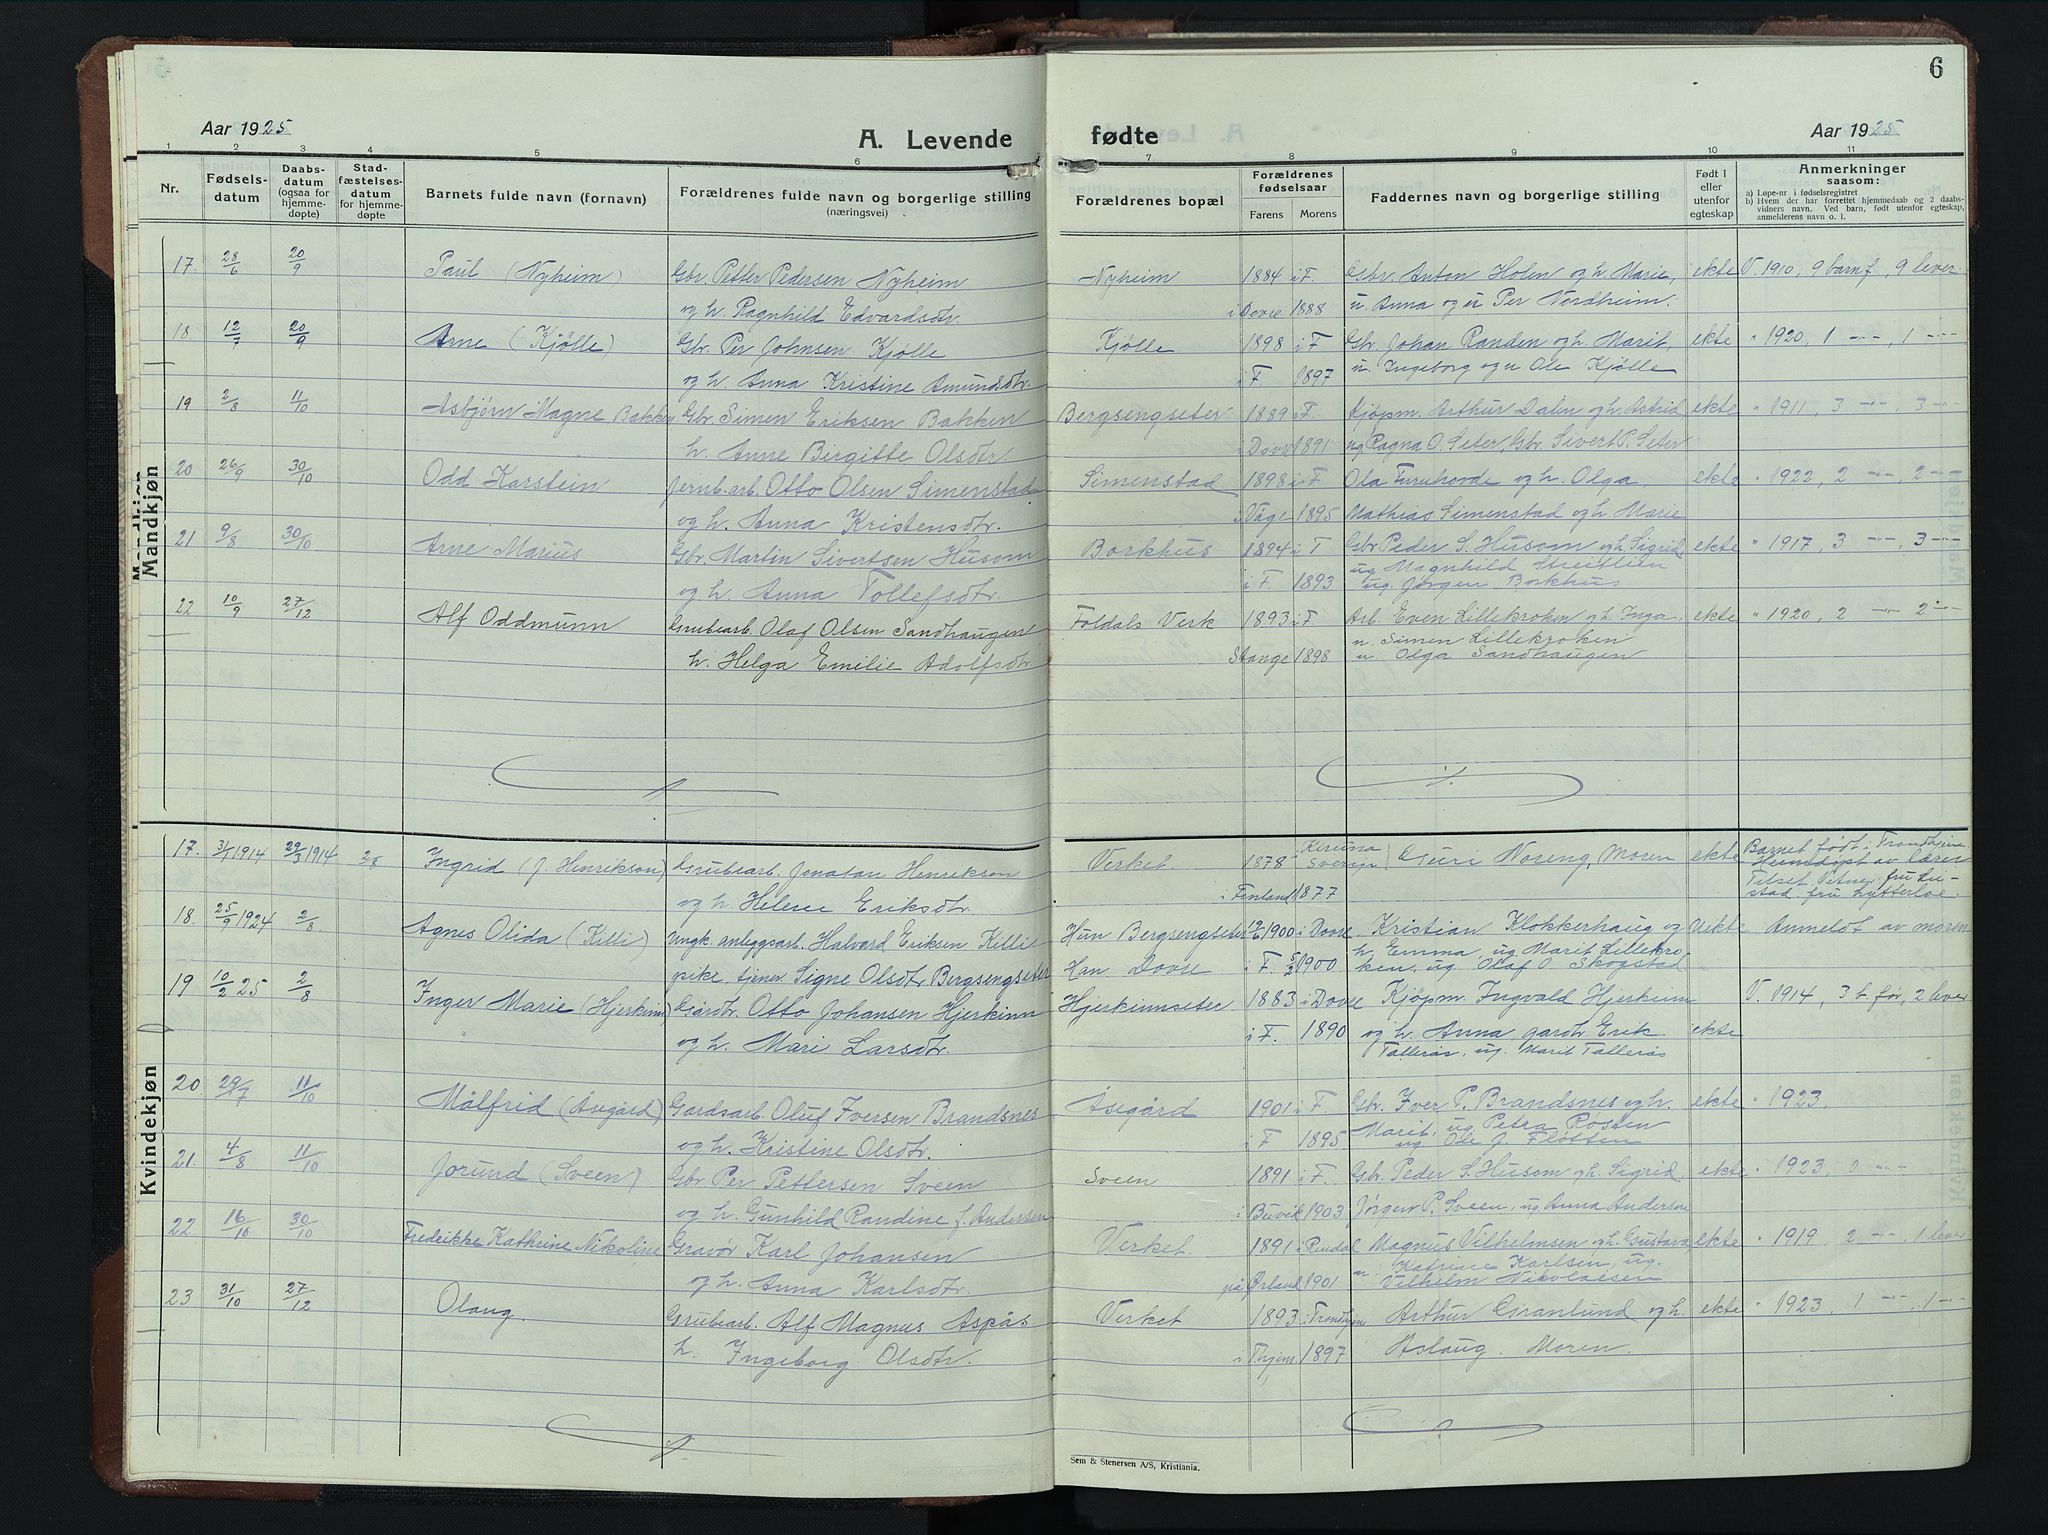 6
Aar 1925
A. Levende
fødte
Aar 1925
1 2 3 4 5 6 7 8 9 10 11
Nr.
Fødsels-
datum
Daabs-
datum
(ogsaa for
hjemme-
døpte)
Stad-
fæstelses-
datum
for hjemme-
døpte
Barnets fulde navn (fornavn)
Forældrenes fulde navn og borgerlige stilling
(næringsvei)
Forældrenes bopæl
Forældrenes
fødselsaar
Farens Morens
Faddernes navn og borgerlige stilling
Født i
eller
utenfor
egteskap
Anmerkninger
saasom:
a) Løpe-nr i fødselsregistret
b) Hvem der har forrettet hjemmedaab og 2 daabs-
vidners navn. Ved barn, født utenfor egteskap,
anmelderens navn o. l.
Mandkjøn
17. 28/6 20/9 Paul (Nyheim) Gbr. Petter Pedersen Nyheim Nyheim 1884 i F. Gbr. Anton Holen og h. Marie, ekte V. 1910, 9 barn f, 9 lever.
og h. Ragnhild Edvardsdtr. i Dovre 1888 u. Anna og u Per Nordheim.
18. 12/7 20/9 Arne (Kjølle) Gbr. Per Johnsen Kjølle Kjølle 1898 i F. Gbr. Johan Randen og h. Marit, ekte " 1920, 1 -"-, 1 -"-
og h. Anna Kristine Amundsdtr. i F. 1897 u. Ingeborg og u Ole Kjølle
19 2/8 11/10 Asbjørn Magne Bakken Gbr. Simen Eriksen Bakken Bergsengseter 1889 i F. Kjøpm. Arthur Dalen og h. Astrid, ekte " 1911, 3 -"-, 3 -"-
h. Anne Birgitte Olsdtr i Dovre 1891 ug Ragna O. Seter, Gbr. Sivert P. Seter
20 26/9 30/10 Odd Karstein Jernb. arb. Otto Olsen Simenstad Simenstad 1898 i F Ola Furuhovde og h. Olga, ekte " 1922, 2 -"- 2 -"-
og h. Anna Kristensdtr. i Våge 1895 Mathias Simenstad og h. Marie
21 9/8 30/10 Arne Marius Gbr. Martin Sivertsen Husom Borkhus 1894 i F Gbr Peder S. Husom og h. Sigrid, ekte " 1917, 3 -"-, 3 -"-
ug Magnhild Streitlien
og h. Anna Tollefsdtr. i F. 1893 ug. Jørgen Borkhus
22 10/9 27/12 Alf Oddmunn Grubearb. Olaf Olsen Sandhaugen Foldals Verk 1893 i F Arb. Even Lillekroken og h. Inga, ekte " 1920, 2 -"- 2 -"-
u. Simen Lillekroken
h. Helga Emilie Adolfsdtr Stange 1898 u. Olga Sandhaugen
Kvindekjøn
17. 31/1 1914 29/3 1914 2/8 Ingrid (J. Henrikson) Grubearb. Jonatan Henrikson Verket 1878 Kiruna Sverige Guri Noreng, Moren ekte Barnet født i Trondhjem
Hjemdøpt av lærer
Tilset Vitner fru
og h. Helene Eriksdtr. i Finland 1877 stad fru Lytterloe.
18. 25/9 1924 2/8 Agnes Olida (Killi) Ungk. anleggsarb. Halvard Eriksen Killi Hun Bergsengseter 1900 i Dovre. Kristian Klokkerhaug og Uekte Anmeldt av moren
h. Emma, ug Marit Lillekro-
pike tjener Signe Olsdtr. Bergsengseter Han Dovre i F. 5/2 1900 ken, ug. Olaf O. Skogstad
19 10/2 25 2/8 Inger Marie (Hjerkinn) Gårdbr. Otto Johansen Hjerkinn Hjerkinnseter 1883 i Dovre Kjøpm. Ingvald Hjerkinn V. 1914, 3 b. før, 2 lever
og h. Mari Larsdtr. i F. 1890 og h. Anna gardbr Erik ekte
Tallerås, ug. Marit Tallerås
20 29/7 11/10 Målfrid (Åsegård) Gardsarb. Oluf Iversen Brandsnes Åsegård 1901 i F. Gbr. Iver P. Brandsnes og h. ekte " 1923.
Marit, ug Petra Røsten
og h. Kristine Olsdtr. i F 1895 ug Ole J. Fløtten
21. 4/8 11/10 Jorund (Sveen) Gbr Per Pettersen Sveen Sveen 1891 i F. Gbr. Peder S. Husom og h. Sigrid. ekte " 1923, 0 -"-
og h. Gunhild Randine f. Andersen i Buvik 1903 Jørgen P. Sveen, ug Anna Andersen
22 16/10 30/10 Fredrikke Kathrine Nikoline Gravør Karl Johansen Verket 1891 i Rindal Magnus Vilhelmsen og h. Gustava, ekte " 1919, 2 -"-, 1 lever
u. Katrine Karlsen, ug.
og h. Anna Karlsdtr. på Ørland 1901 Vilhelm Nikolaisen
23 31/10 27/12 Olaug. Grubearb. Alf Magnus Aspås Verket 1893 i Trondhjem Arthur Granlund og h. ekte " 1923, 1 -"-, 1 -"-
h. Ingeborg Olsdtr. i 1897 Aslaug. Moren.
Sem & Stenersen A/S, Kristiania.